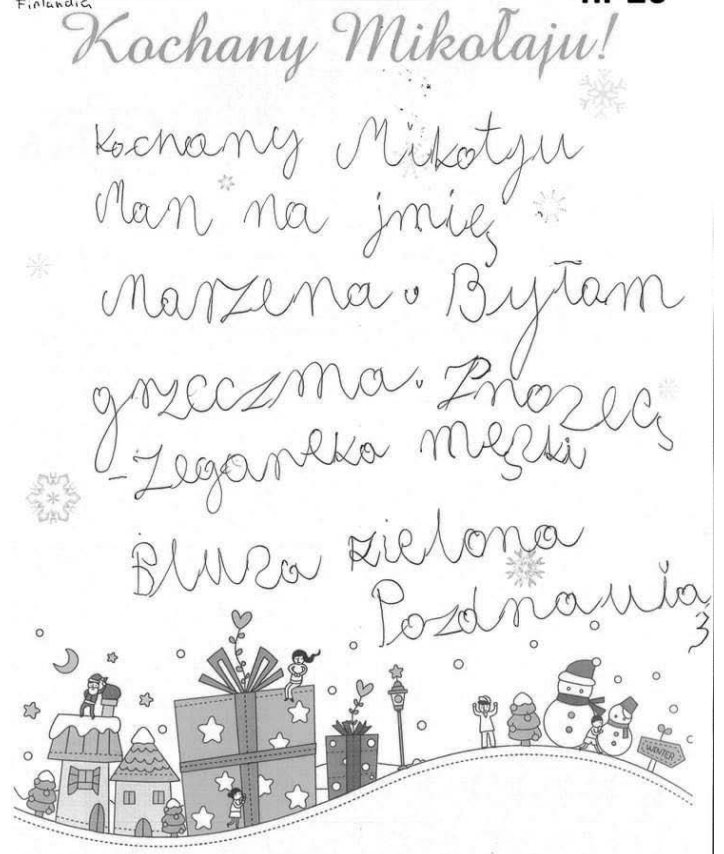 Finlandia
Kochany Mikołaju!
Kochany Mikołyju
Man na jmię
Marzena. Byłam
grzeczma. Proszeę
-zegareka męzki
Bluza zielona
Pozdrawią
WINTER